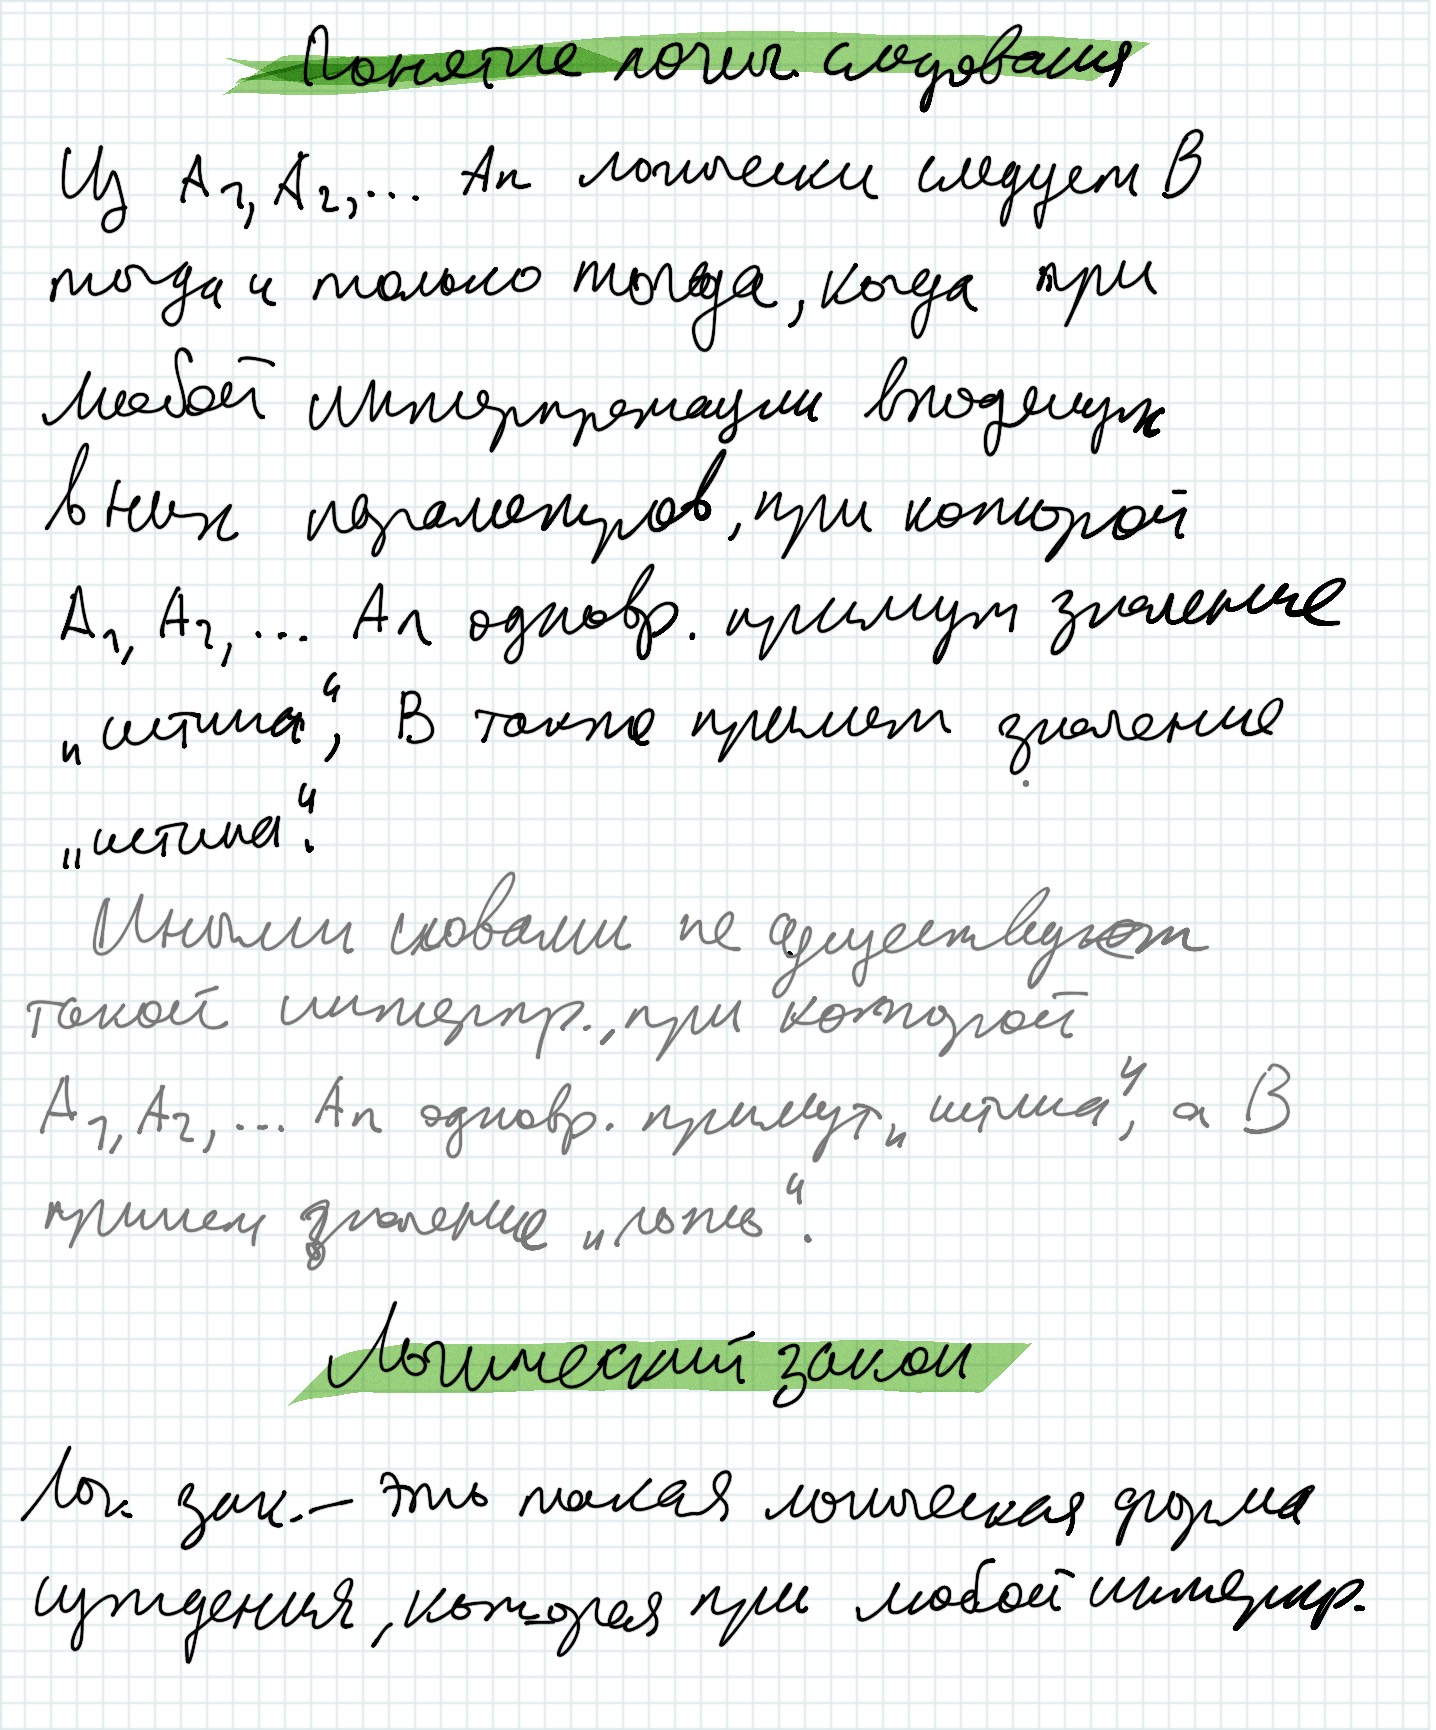 Понятие логич. следования
Из A1, A2, ... An логически следует B
тогда и только тогда, когда при
любой интерпретации входящих
в них параметров, при которой
A1, A2, ... An одновр. примут значение
„истина“, B также примет значение
„истина“.
Иными словами не существует
такой интерпр., при которой
A1, A2, ... An одновр. примут „истина“, а B
примет значение „ложь“.
Логический закон
Лог. зак. – это такая логическая форма
суждения, которая при любой интерпр.